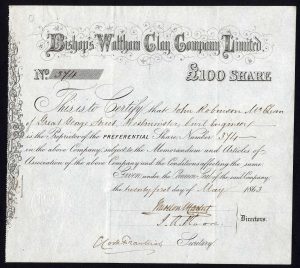 Bishops Waltham Clay Company Limited.
No. 374
£100 SHARE
This is to Certify that John Robinson McClean
of Great George Street Westminster Civil Engineer
is the Proprietor of the PREFERENTIAL Share Number 374
in the above Company, subject to the Memorandum and Articles of
Association of the above Company and the Conditions affecting the same
Given under the Common Seal of the said Company,
the twenty first day of May 1863
Directors.
Secretary